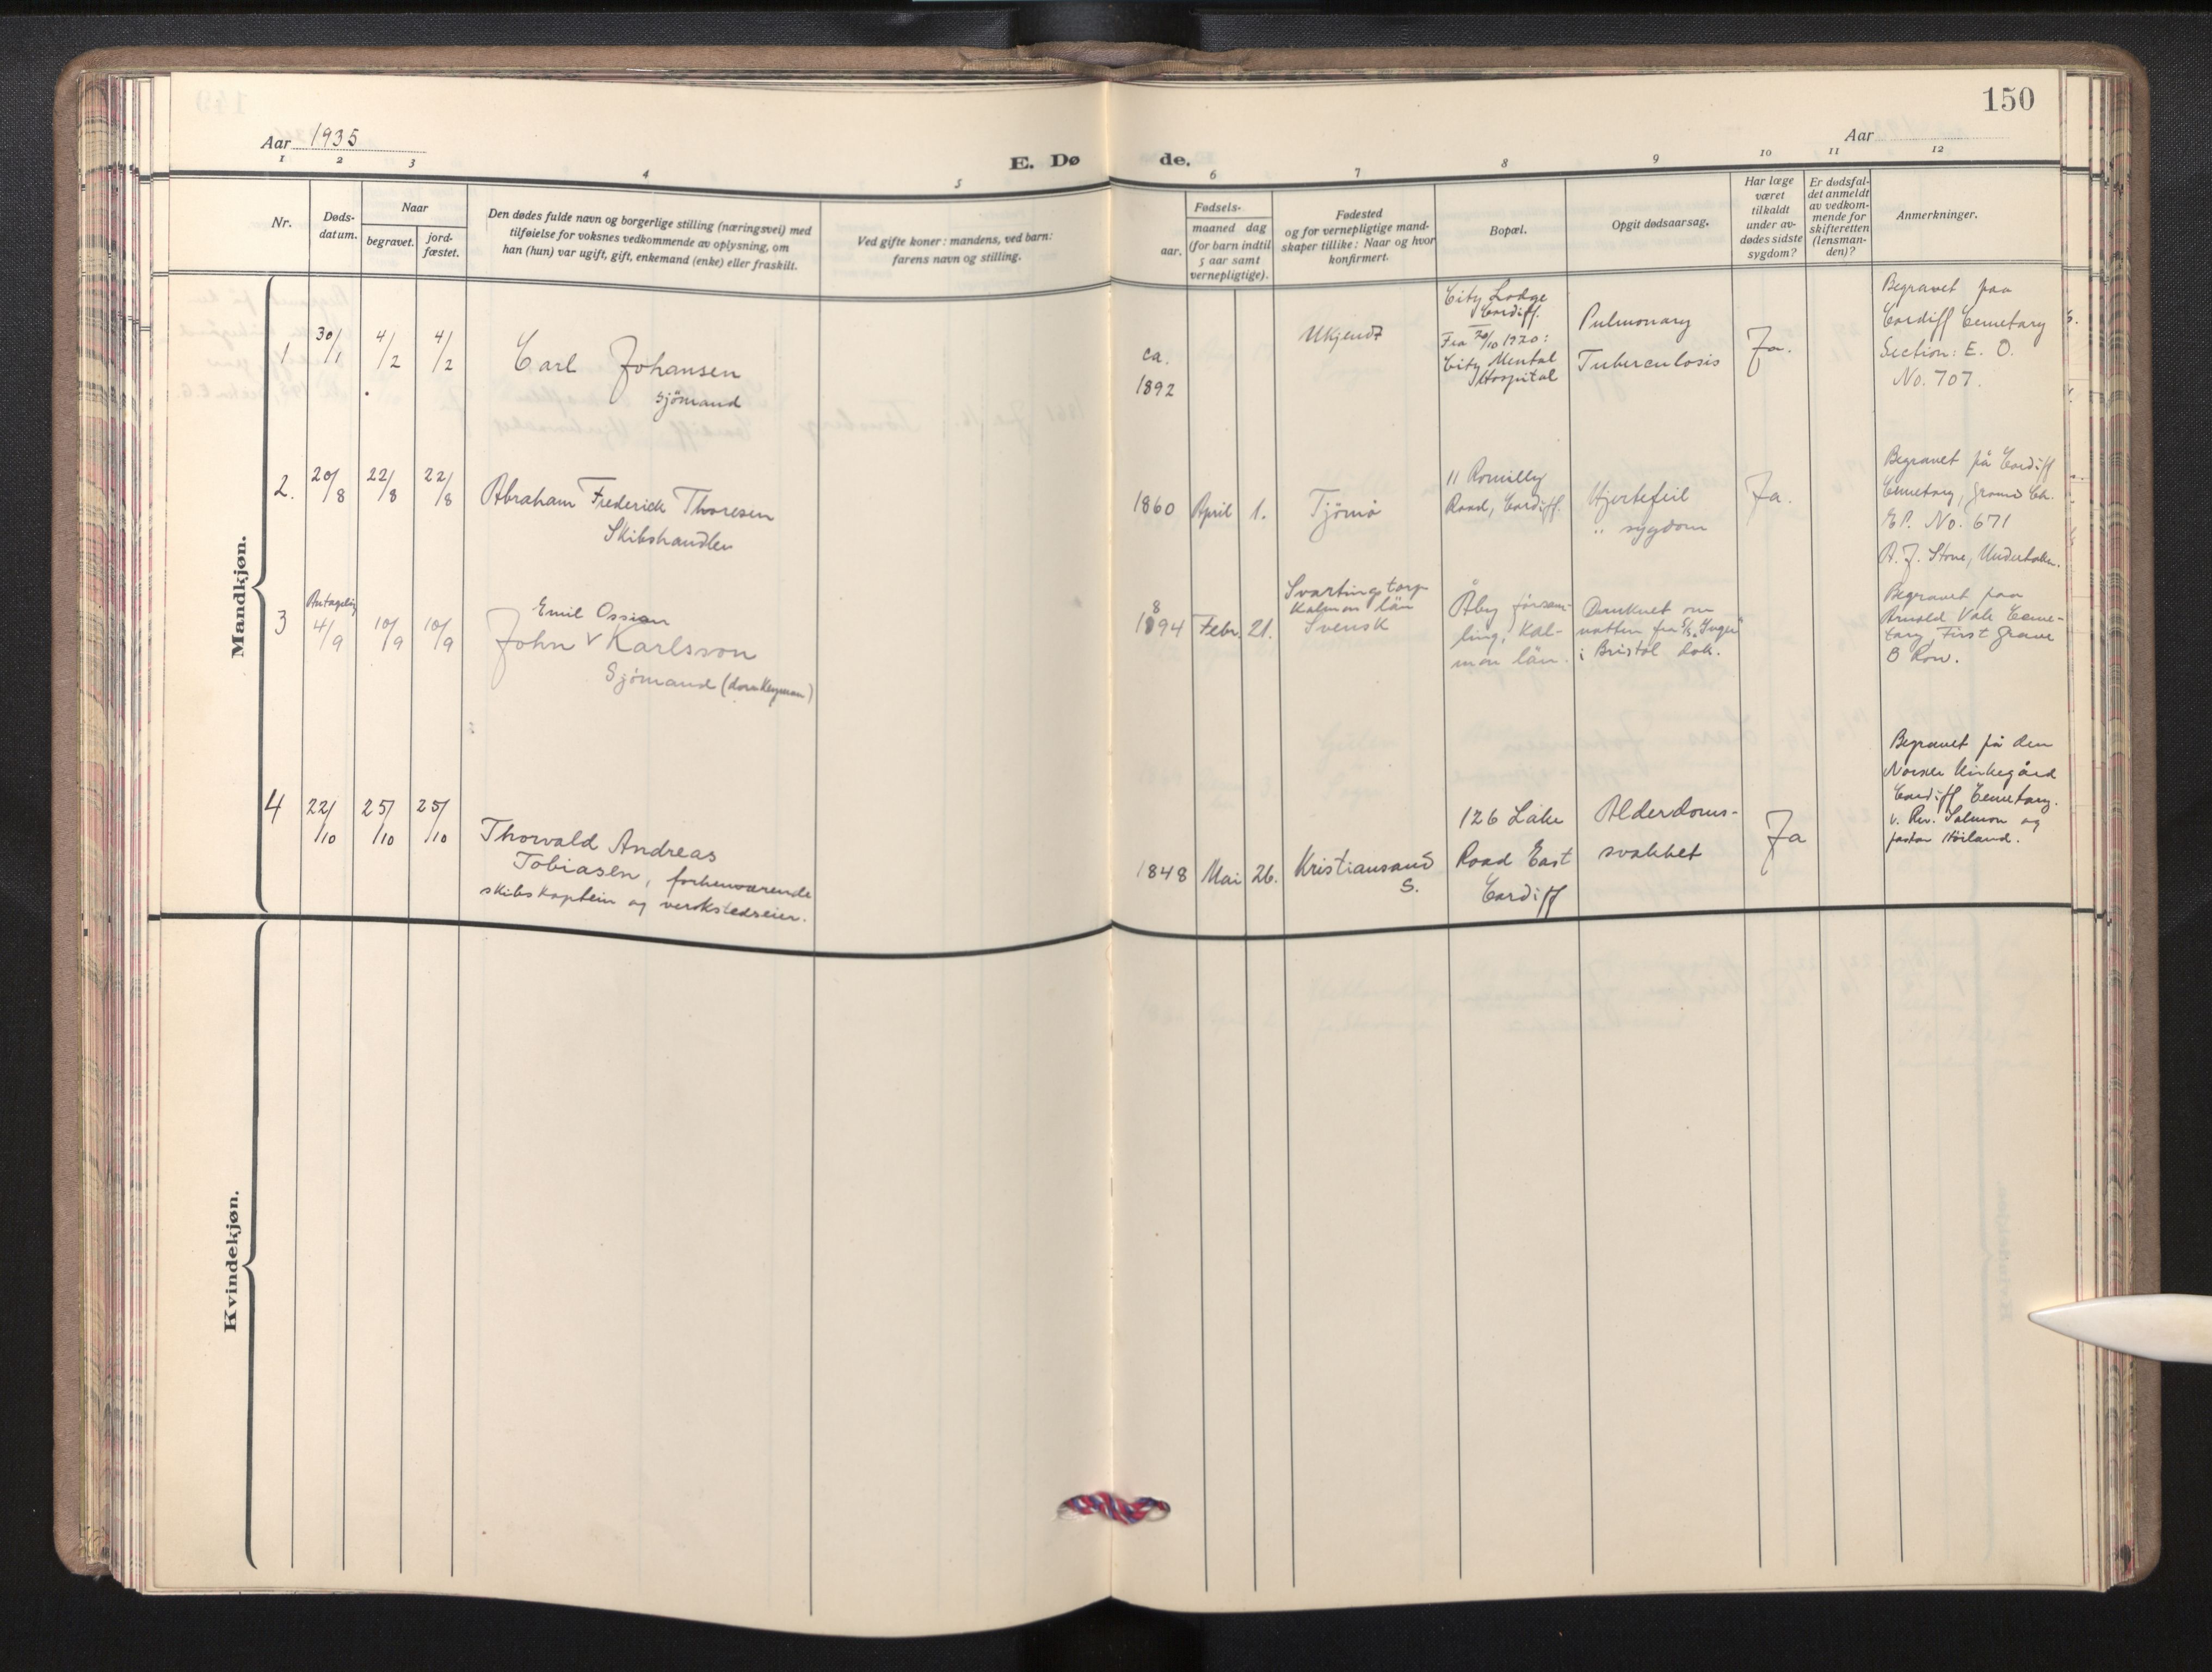 150
Aar 1935
Aar
E. Dø de.
1 2 3 4 5 6 7 8 9 10 11 12
Nr.
Døds-
datum.
Naar
begravet.
jord-
fæstet.
Den dødes fulde navn og borgerlige stilling (næringsvei) med
tilføielse for voksnes vedkommende av oplysning, om
han (hun) var ugift, gift, enkemand (enke) eller fraskilt.
Ved gifte koner: mandens, ved barn:
farens navn og stilling.
Fødsels-
aar.
maaned dag
(for barn indtil
5 aar samt
vernepligtige).
Fødested
og for vernepligtige mand-
skaper tillike: Naar og hvor
konfirmert.
Bopæl.
Opgit dødsaarsag.
Har læge
været
tilkaldt
under av-
dødes sidste
sygdom?
Er dødsfal-
det anmeldt
av vedkom-
mende for
skifteretten
(lensman-
den)?
Anmerkninger.
Mandkjøn.
1
30/1
4/2
4/2
Carl Johansen
sjømand
ca.
1892
Ukjendt
City Lodge
Cardiff.
Fra 20/10 1920:
City Mental
Hospital
Pulmonary
Tuberculosis
Ja.
Begravet paa
Cardiff Cemetary
Section: E. O.
No. 707.
2.
20/8
22/8
22/8
Abraham Frederick Thoresen
Skibshandler
1860 April 1.
Tjömö
11 Romilly
Road, Cardiff.
Hjertefeil
" sygdom
Ja.
Begravet på Cardiff
Cemetary, Ground Ch.
E.P. No. 671
A. J. Stone, Undertaker.
3
Antagelig
4/9
10/9
10/9
Emil Ossian
John v Karlsson
Sjömand (donkeyman)
8
1894 Febr. 21.
Svartingstorp
Kalmar län
Svensk
Åby försam-
ling, Kal-
mar län.
Druknet om
natten fra S/S "Inger"
i Bristol dok.
Begravet paa
Arnold Vale Ceme-
tary, First Grave
B Row.
4
22/10
25/10
25/10
Thorvald Andreas
Tobiasen, forhenværende
skibskaptein og verkstedseier.
1848 Mai 26.
Kristiansand
S.
126 Lake
Road East
Cardiff
Alderdoms-
svakhet
Ja
Begravet på den
Norske Kirkegård
Cardiff Cemetary.
v. Rev. Salmon og
pastor Hörland.
Kvindekjøn.